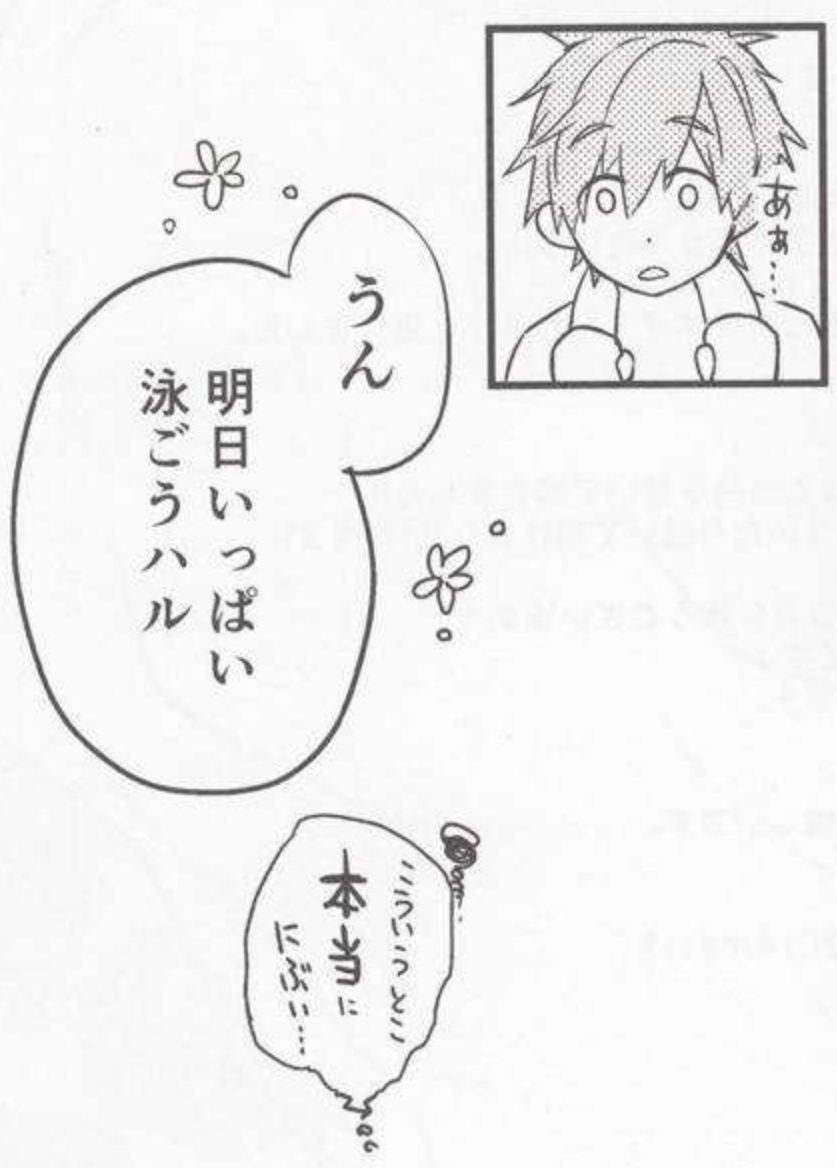 あぁ…
うん
明日いっぱい
泳ごうハル
こういうとこ
本当に
にぶい……